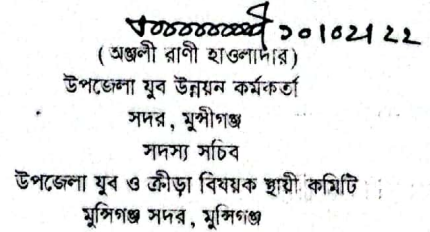 ১০।০২।২২
(অঞ্জলী রাণী হাওলাদার)
উপজেলা যুব উন্নয়ন কর্মকর্তা
সদর, মুন্সীগঞ্জ
সদস্য সচিব
উপজেলা যুব ও ক্রীড়া বিষয়ক স্থায়ী কমিটি
মুন্সিগঞ্জ সদর, মুন্সিগঞ্জ